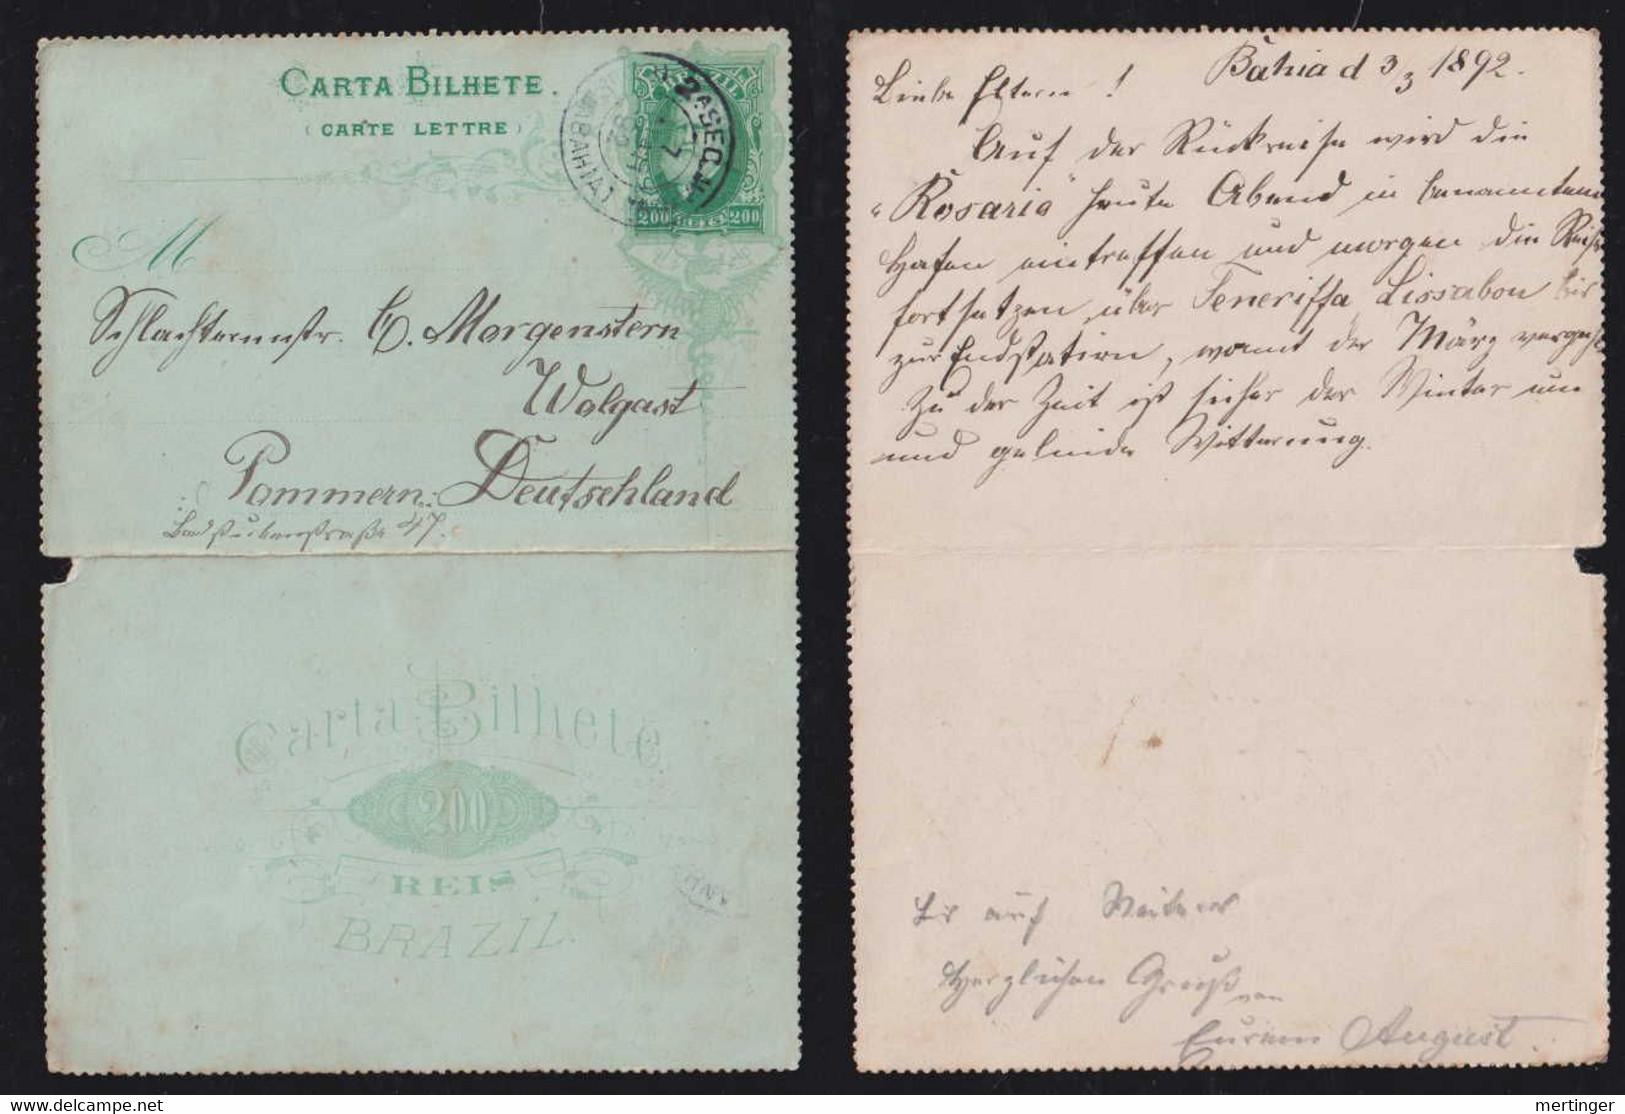 CARTA BILHETE.
(CARTE LETTRE)
BRAZIL
200 REIS 200
2ª SEC.
(BAHIA)
M
Schlachtermstr. C. Morgenstern
Wolgast
Pommern. Deutschland
47.
Carta Bilhete
200
REIS
BRAZIL.
Bahia d 3/3 1892.
Liebe Eltern!
Auf der Rückreise wird die
"Rosario" heute Abend in benanntem
Hafen eintreffen und morgen die Reise
fortsetzen über Teneriffa Lissabon bis
zur Endstation, womit der März vergeht
Zu der Zeit ist sicher der Winter um
und gelinde Witterung.
Bis auf Weiteres
Herzlichen Gruß von
Eurem August.
mertinger